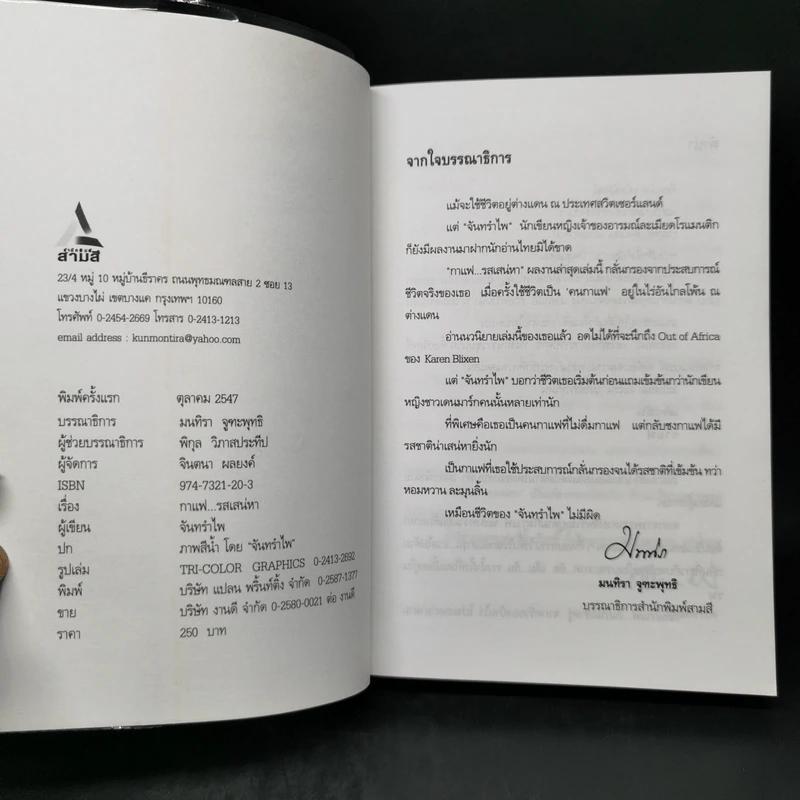 สำนักพิมพ์
สามสี
23/4 หมู่ 10 หมู่บ้านธีราคร ถนนพุทธมณฑลสาย 2 ซอย 13
แขวงบางไผ่ เขตบางแค กรุงเทพฯ 10160
โทรศัพท์ 0-2454-2669 โทรสาร 0-2413-1213
email address : kunmontira@yahoo.com
พิมพ์ครั้งแรก ตุลาคม 2547
บรรณาธิการ มนทิรา จูฑะพุทธิ
ผู้ช่วยบรรณาธิการ พิกุล วิภาสประทีป
ผู้จัดการ จินตนา ผลยงค์
ISBN 974-7321-20-3
เรื่อง กาแฟ...รสเสน่หา
ผู้เขียน จันทรำไพ
ปก ภาพสีน้ำ โดย "จันทรำไพ"
รูปเล่ม TRI-COLOR GRAPHICS 0-2413-2692
พิมพ์ บริษัท แปลน พริ้นท์ติ้ง จำกัด 0-2587-1377
ขาย บริษัท งานดี จำกัด 0-2580-0021 ต่อ งานดี
ราคา 250 บาท
จากใจบรรณาธิการ
แม้จะใช้ชีวิตอยู่ต่างแดน ณ ประเทศสวิตเซอร์แลนด์
แต่ "จันทรำไพ" นักเขียนหญิงเจ้าของอารมณ์ละเมียดโรแมนติก
ก็ยังมีผลงานมาฝากนักอ่านไทยมิได้ขาด
"กาแฟ...รสเสน่หา" ผลงานล่าสุดเล่มนี้ กลั่นกรองจากประสบการณ์
ชีวิตจริงของเธอ เมื่อครั้งใช้ชีวิตเป็น 'คนกาแฟ' อยู่ในไร่อันไกลโพ้น ณ
ต่างแดน
อ่านนวนิยายเล่มนี้ของเธอแล้ว อดไม่ได้ที่จะนึกถึง Out of Africa
ของ Karen Blixen
แต่ "จันทรำไพ" บอกว่าชีวิตเธอเริ่มต้นก่อนแถมเข้มข้นกว่านักเขียน
หญิงชาวเดนมาร์กคนนั้นหลายเท่านัก
ที่พิเศษคือเธอเป็นคนกาแฟที่ไม่ดื่มกาแฟ แต่กลับชงกาแฟได้มี
รสชาติน่าเสน่หายิ่งนัก
เป็นกาแฟที่เธอใช้ประสบการณ์กลั่นกรองจนได้รสชาติที่เข้มข้น ทว่า
หอมหวาน ละมุนลิ้น
เหมือนชีวิตของ "จันทรำไพ" ไม่มีผิด
มนทิรา จูฑะพุทธิ
บรรณาธิการสำนักพิมพ์สามสี